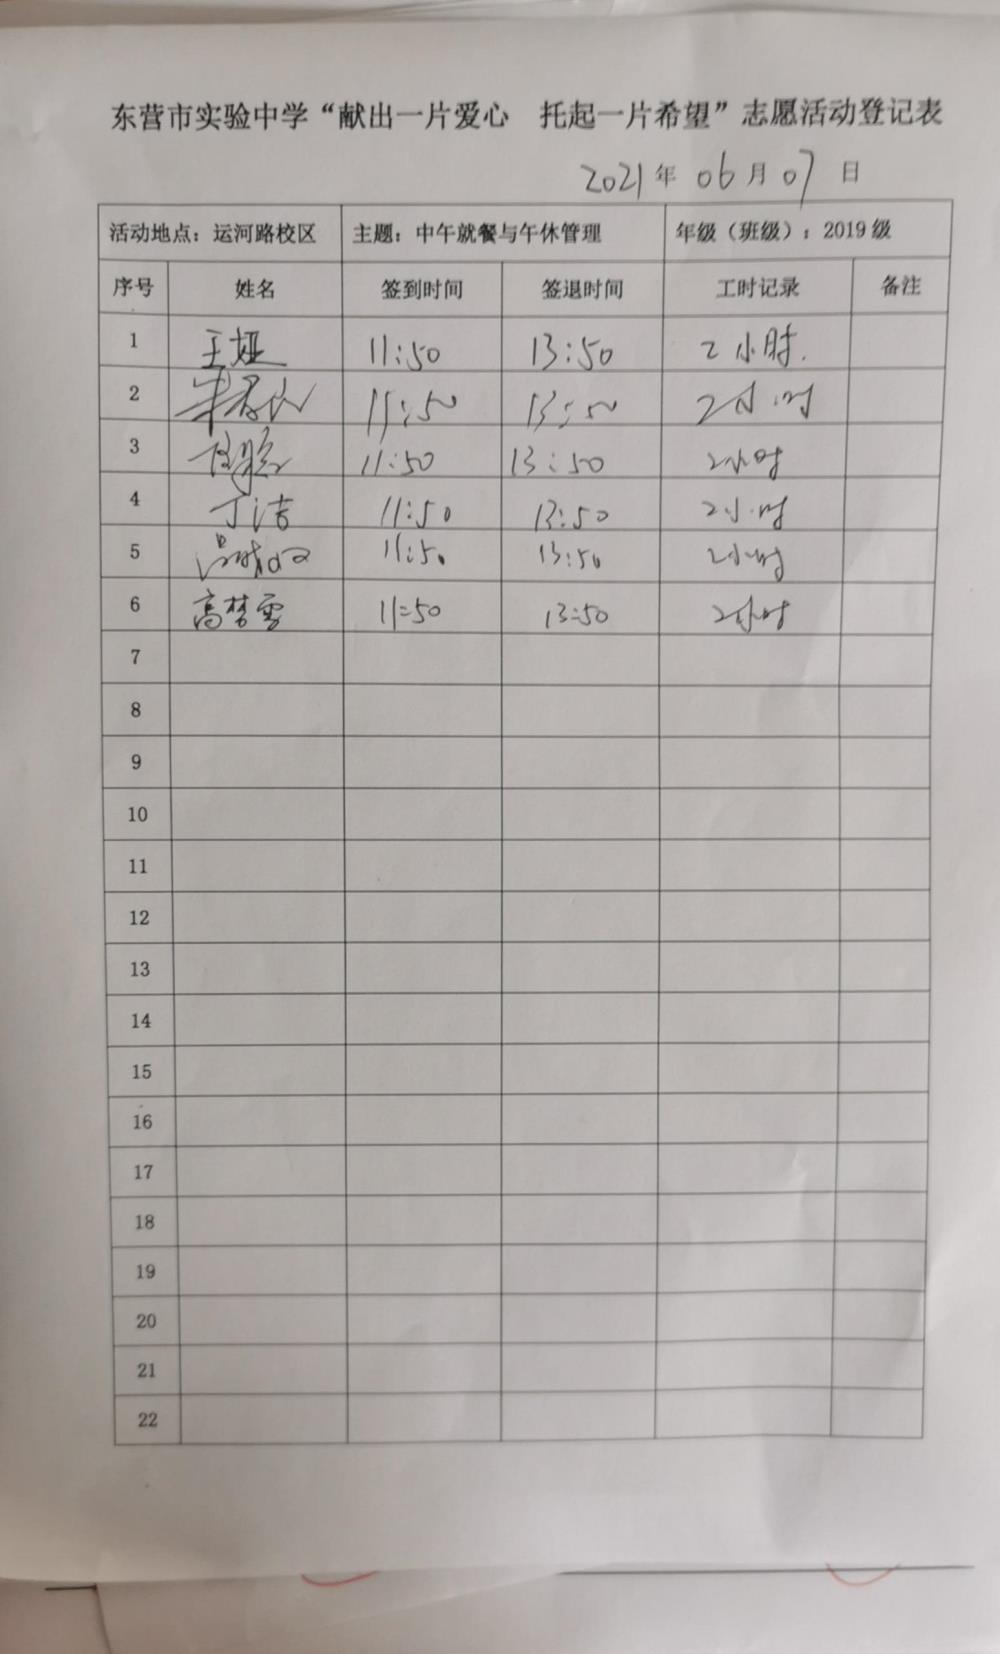 东营市实验中学“献出一片爱心 托起一片希望”志愿活动登记表
2021年 06月 07日
活动地点：运河路校区 主题：中午就餐与午休管理 年级（班级）：2019级
序号 姓名 签到时间 签退时间 工时记录 备注
1 王娅 11:50 13:50 2小时.
2 11:50 13:50 2小时
3 11:50 13:50 2小时
4 丁洁 11:50 13:50 2小时
5 11:50 13:50 2小时
6 高梦雪 11:50 13:50 2小时
7
8
9
10
11
12
13
14
15
16
17
18
19
20
21
22